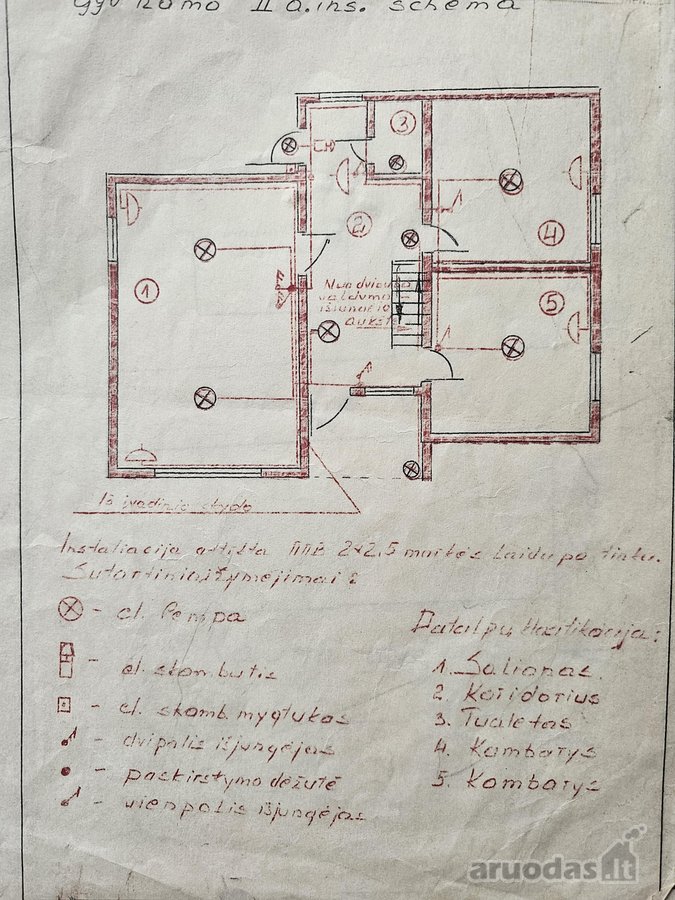 Gyv. namo II a. ins. schema
3
2
4
1
5
Nuo dviejų
valdymo
išjungėjo
aukšt
Iš įvadinio skydo
Instaliacija atlikta ППВ 2x2,5 markės laidu po tinku.
Sutartiniai žymėjimai:
- el. lempa
- el. skambutis
- el. skamb. mygtukas
- dvipolis išjungėjas
- paskirstymo dėžutė
- vienpolis išjungėjas
Patalpų
1. Salionas
2. Koridorius
3. Tualetas
4. Kambarys
5. Kambarys
aruodas.lt